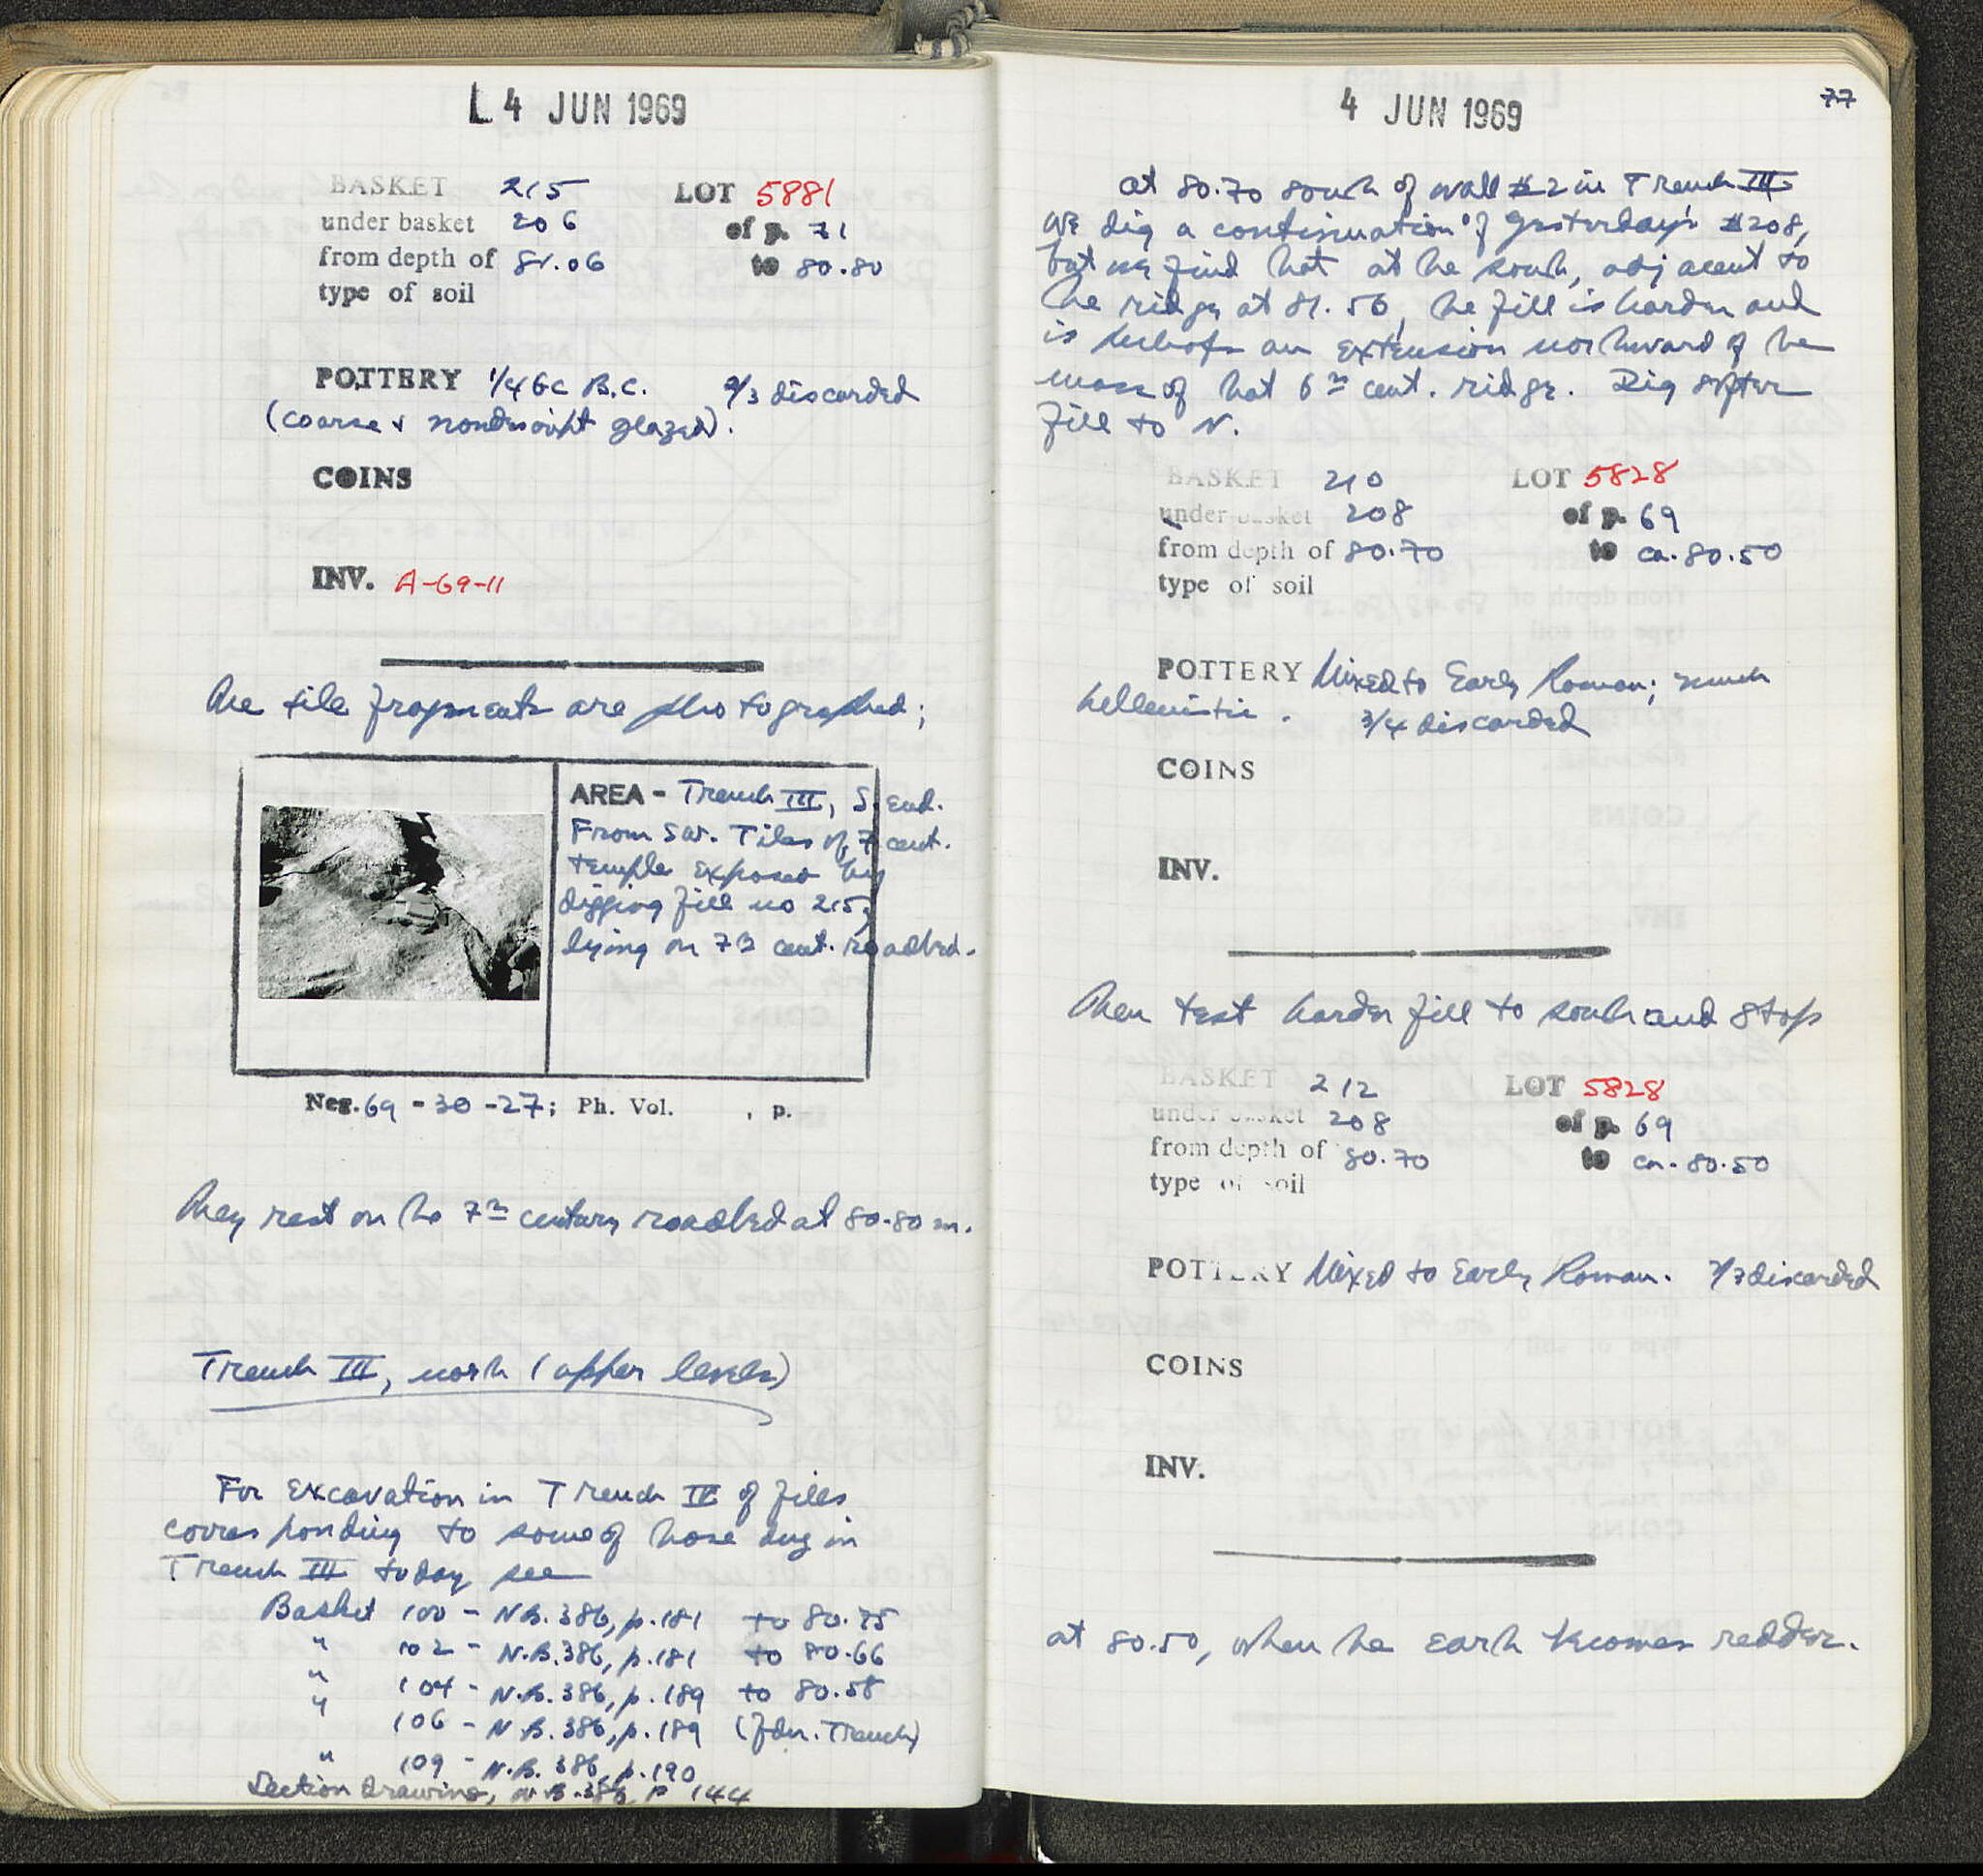 4 JUN 1969
BASKET 215 LOT 5881
under basket 206 of p. 71
from depth of 81.06 to 80.80
type of soil
POTTERY 1/4 6c B.C. 2/3 discarded
(coarse + nondescript glazed).
COINS
INV. A-69-11
The tile fragments are photographed;
AREA - Trench III, S. end.
From SW. Tiles of 7 cent.
temple exposed by
digging fill no 215,
lying on 7th cent. roadbed.
Neg. 69-30-27; Ph. Vol. , p.
They rest on the 7th century roadbed at 80.80 m.
Trench III, north (upper levels)
For excavation in Trench IV of fills
corresponding to some of those dug in
Trench III today see
Basket 100 - N.B. 386, p. 181 to 80.75
" 102 - N.B. 386, p. 181 to 80.66
" 104 - N.B. 386, p. 189 to 80.58
" 106 - N.B. 386, p. 189 (fdn. Trench)
" 109 - N.B. 386, p. 190
Section drawing, N.B. 386, p 144
4 JUN 1969
77
at 80.70 south of wall #2 in Trench III
we dig a continuation of yesterday's #208,
but we find that at the south, adjacent to
the ridge at 81.50, the fill is harder and
is perhaps an extension northward of the
mass of that 6th cent. ridge. Dig softer
fill to N.
BASKET 210 LOT 5828
under basket 208 of p. 69
from depth of 80.70 to ca. 80.50
type of soil
POTTERY Mixed to Early Roman; much
hellenistic. 3/4 discarded
COINS
INV.
Then test harder fill to south and stop
BASKET 212 LOT 5828
under basket 208 of p. 69
from depth of 80.70 to ca. 80.50
type of soil
POTTERY Mixed to Early Roman. 2/3 discarded
COINS
INV.
at 80.50, when the earth becomes redder.